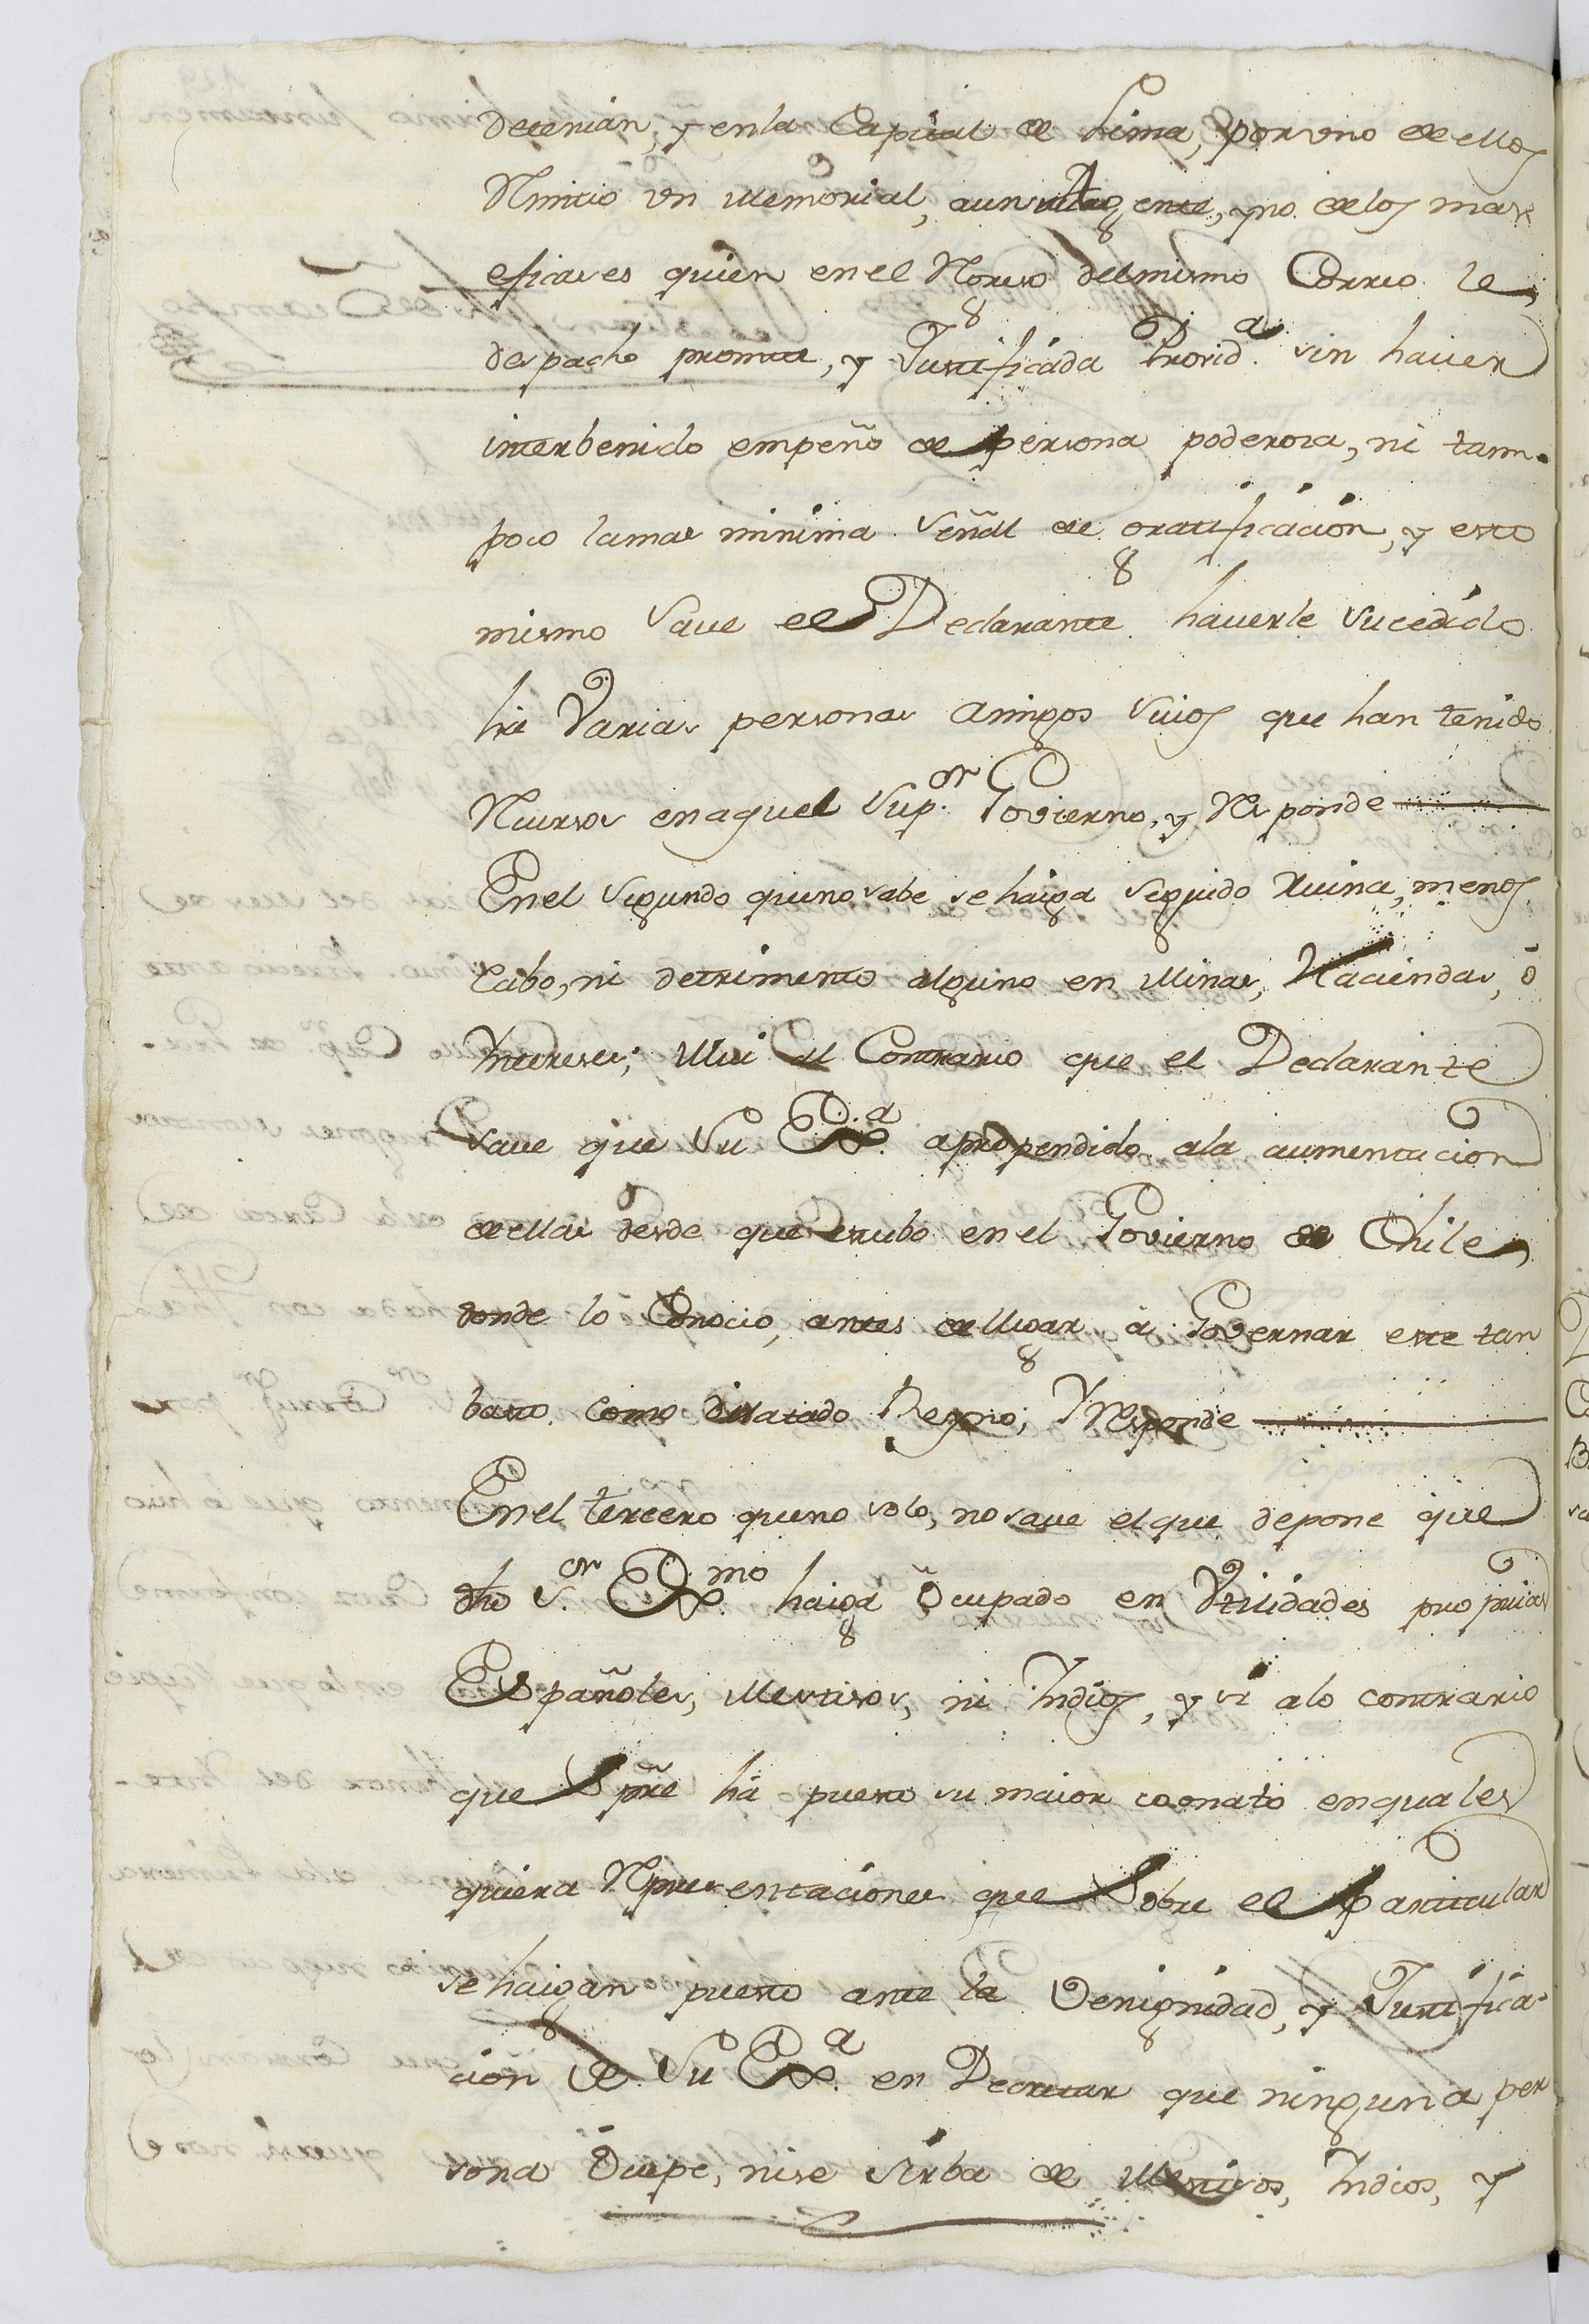 detenian, y enla Capital de Lima, por uno de ellos
Rmitio un Memorial, aun Agente, y no delos mas
eficases quien enel Regreso del mismo Correo le
despacho prompta, y Justificada Provid.a sin haver
interbenido empeño de persona poderosa, ni tam-
poco lamas minima señal de gratificación, y esto
mismo save el Declarante haverle sucedido
ha Varias personas amigos suios que han tenido
Recursos en aquel Sup.or Govierno, y Responde
Enel segundo queno sabe se haiga seguido Ruina, menos
cabo, ni detrimento alguno en Minas, Haciendas, ó
Yntereses; Mui al Contrario que el Declarante
save que Su Ex.a apropendido ala aumentacion
de ellas desde que estubo en el Govierno de Chile,
donde lo Conocio, antes de llegar á Governar este tan
basto como dilatado Reyno; Y Responde
Enel tercero queno solo, no save elque depone que
dho S.or Ex.mo haiga Ocupado en Vtilidades propias
Españoles, Mestisos, ni Indios, y si alo contrario
que Spre há puesto su maior cognato enquales
quiera Rpresentaciones que Sobre el particular
se haigan puesto ante la Venignidad, y Justifica-
cion de Su Ex.a en Decretar que ninguna per
sona Ocupe, nise sirba de Mestisos, Indios, y